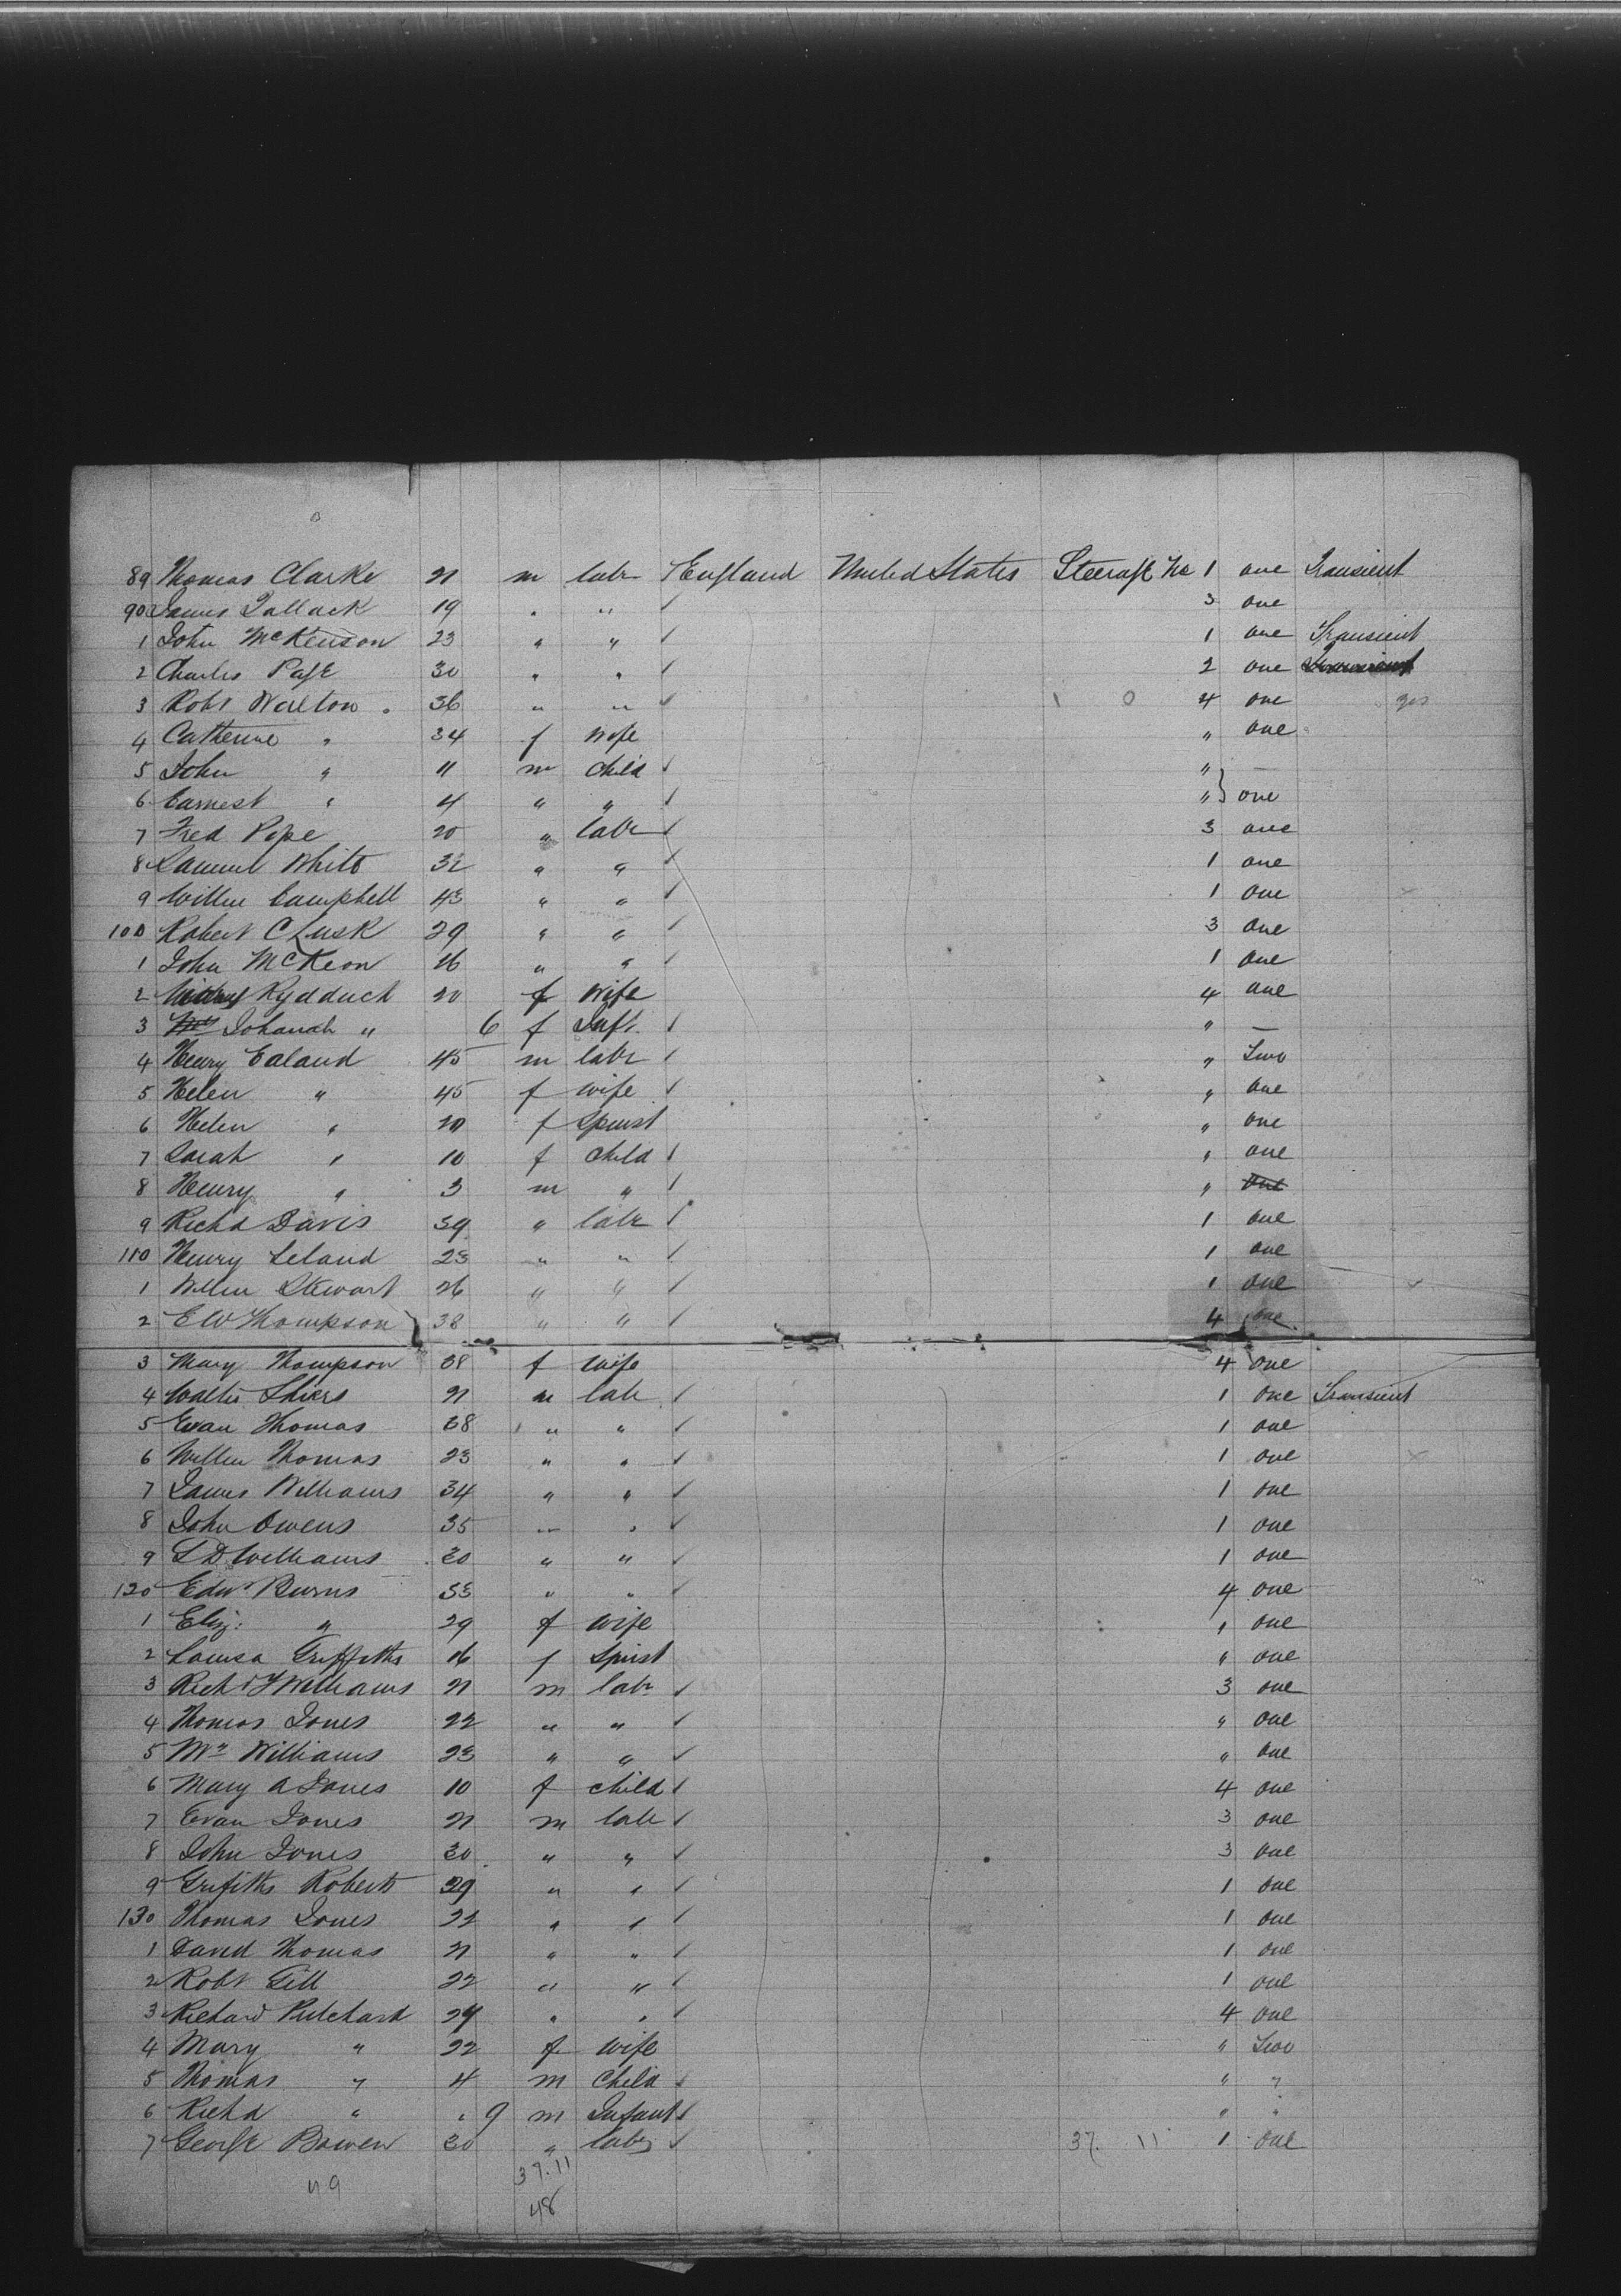 89 Thomas Clarke 21 m labr England United States Steerage No 1 one Transient
90 James Tallack 19 " " ✓ 3 one
1 John McKenson 23 " " ✓ 1 one Transient
2 Charles Page 30 " " ✓ 2 one
3 Robt Walton 36 " " ✓ 1 0 4 one
4 Catherine " 34 f wife " one
5 John " 11 m child ✓ " —
6 Earnest " 4 " " ✓ " } one
7 Fred Pope 20 " labr ✓ 3 one
8 Samuel White 32 " " ✓ 1 one
9 Willm Campbell 43 " " ✓ 1 one
100 Robert C Lusk 29 " " ✓ 3 one
1 John McKeon 26 " " ✓ 1 one
2 Rydduch 20 f wife 4 one
3 Johanah " 6 f Inft. ✓ " —
4 Henry Ealand 45 m labr ✓ " Two
5 Helen " 45 f wife ✓ " one
6 Helen " 20 f Spinst " one
7 Sarah " 10 f child ✓ " one
8 Henry " 3 m " ✓ " one
9 Richd Davis 39 " labr ✓ 1 one
110 Henry Leland 23 " " ✓ 1 one
1 Willm Stewart 26 " " ✓ 1 one
2 E W Thompson } 38 " " ✓ 4 one
3 Mary Thompson 38 f wife 4 one
4 Walter Shiers 21 m labr ✓ 1 one Transient
5 Evan Thomas 38 " " ✓ 1 one
6 Willm Thomas 23 " " ✓ 1 one
7 James Williams 34 " " ✓ 1 one
8 John Owens 35 " " ✓ 1 one
9 D Williams 30 " " ✓ 1 one
120 Edwd Burns 33 " " ✓ 4 one
1 Eliz: " 29 f wife " one
2 Louisa Griffiths 16 f Spinst " one
3 Richd Williams 21 m labr ✓ 3 one
4 Thomas Jones 22 " " ✓ " one
5 Wm Williams 23 " " ✓ " one
6 Mary A Jones 10 f child ✓ 4 one
7 Evan Jones 21 m labr ✓ 3 one
8 John Jones 30 " " ✓ 3 one
9 Grifiths Roberts 29 " " ✓ 1 one
130 Thomas Jones 22 " " ✓ 1 one
1 David Thomas 21 " " ✓ 1 one
2 Robt Gill 22 " " ✓ 1 one
3 Richard Pritchard 24 " " ✓ 4 one
4 Mary " 22 f wife " Two
5 Thomas " 4 m Child ✓ " "
6 Richd " " 9 m Infant ✓ " "
7 George Bowen 30 " labr ✓ 37. 11 1 one
37.11
49
48